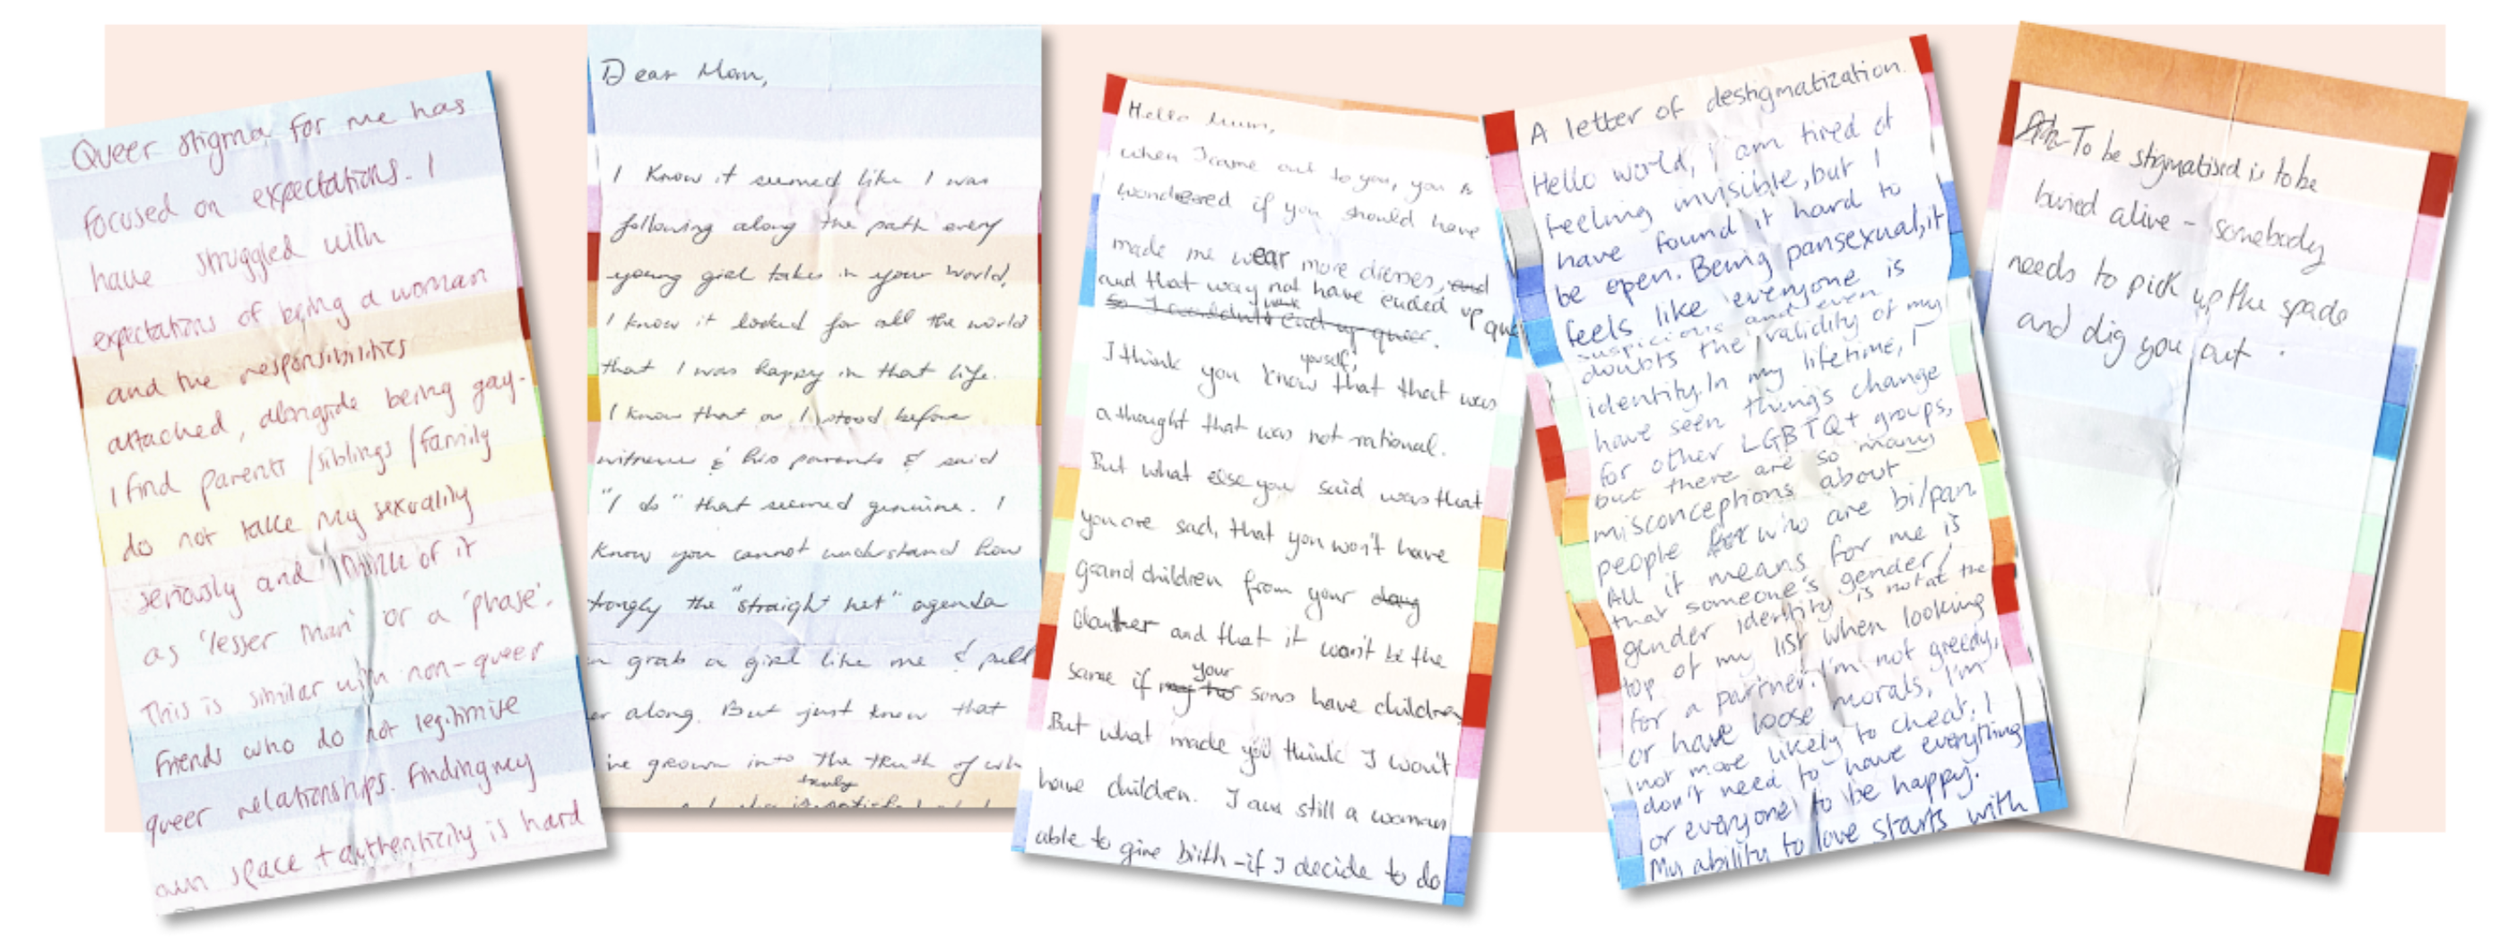 Queer stigma for me has
focused on expectations. I
have struggled with
expectations of being a woman
and the responsibilities
attached, alongside being gay.
I find parents/siblings/family
do not take my sexuality
seriously and think of it
as 'lesser than' or a 'phase'.
This is similar with non-queer
friends who do not legitimise
queer relationships. Finding my
own space + authenticity is hard
Dear Mom,
I know it seemed like I was
following along the path every
young girl takes in your world,
I know it looked for all the world
that I was happy in that life.
I know that as I stood before
witnesses & his parents & said
"I do" that seemed genuine. I
know you cannot understand how
trongly the "straight net" agenda
n grab a girl like me & pull
er along. But just know that
've grown into the truth of wh
truly
Hello Mum,
when I came out to you, you
wondered if you should have
made me wear more dresses, and
and that way not have ended up que
so I wouldn't have end up queer.
I think you know yourself, that that was
a thought that was not rational.
But what else you said was that
you are sad, that you won't have
grandchildren from your daug
and that it won't be the
same if my two your sons have children
But what made you think I won't
have children. I am still a woman
able to give birth - if I decide to do
A letter of destigmatization.
Hello world, i am tired of
feeling invisible, but I
have found it hard to
be open. Being pansexual, it
feels like everyone is
suspicious and even
doubts the validity of my
identity. In my lifetime, I
have seen things change
for other LGBTQ+ groups,
but there are so many
misconceptions about
people who are bi/pan
All it means for me is
that someone's gender/
gender identity is not at the
top of my list when looking
for a partner. I'm not greedy,
or have loose morals, I'm
not more likely to cheat. I
don't need to have everything
or everyone to be happy.
My ability to love starts with
To be stigmatised is to be
buried alive - somebody
needs to pick up the spade
and dig you out.